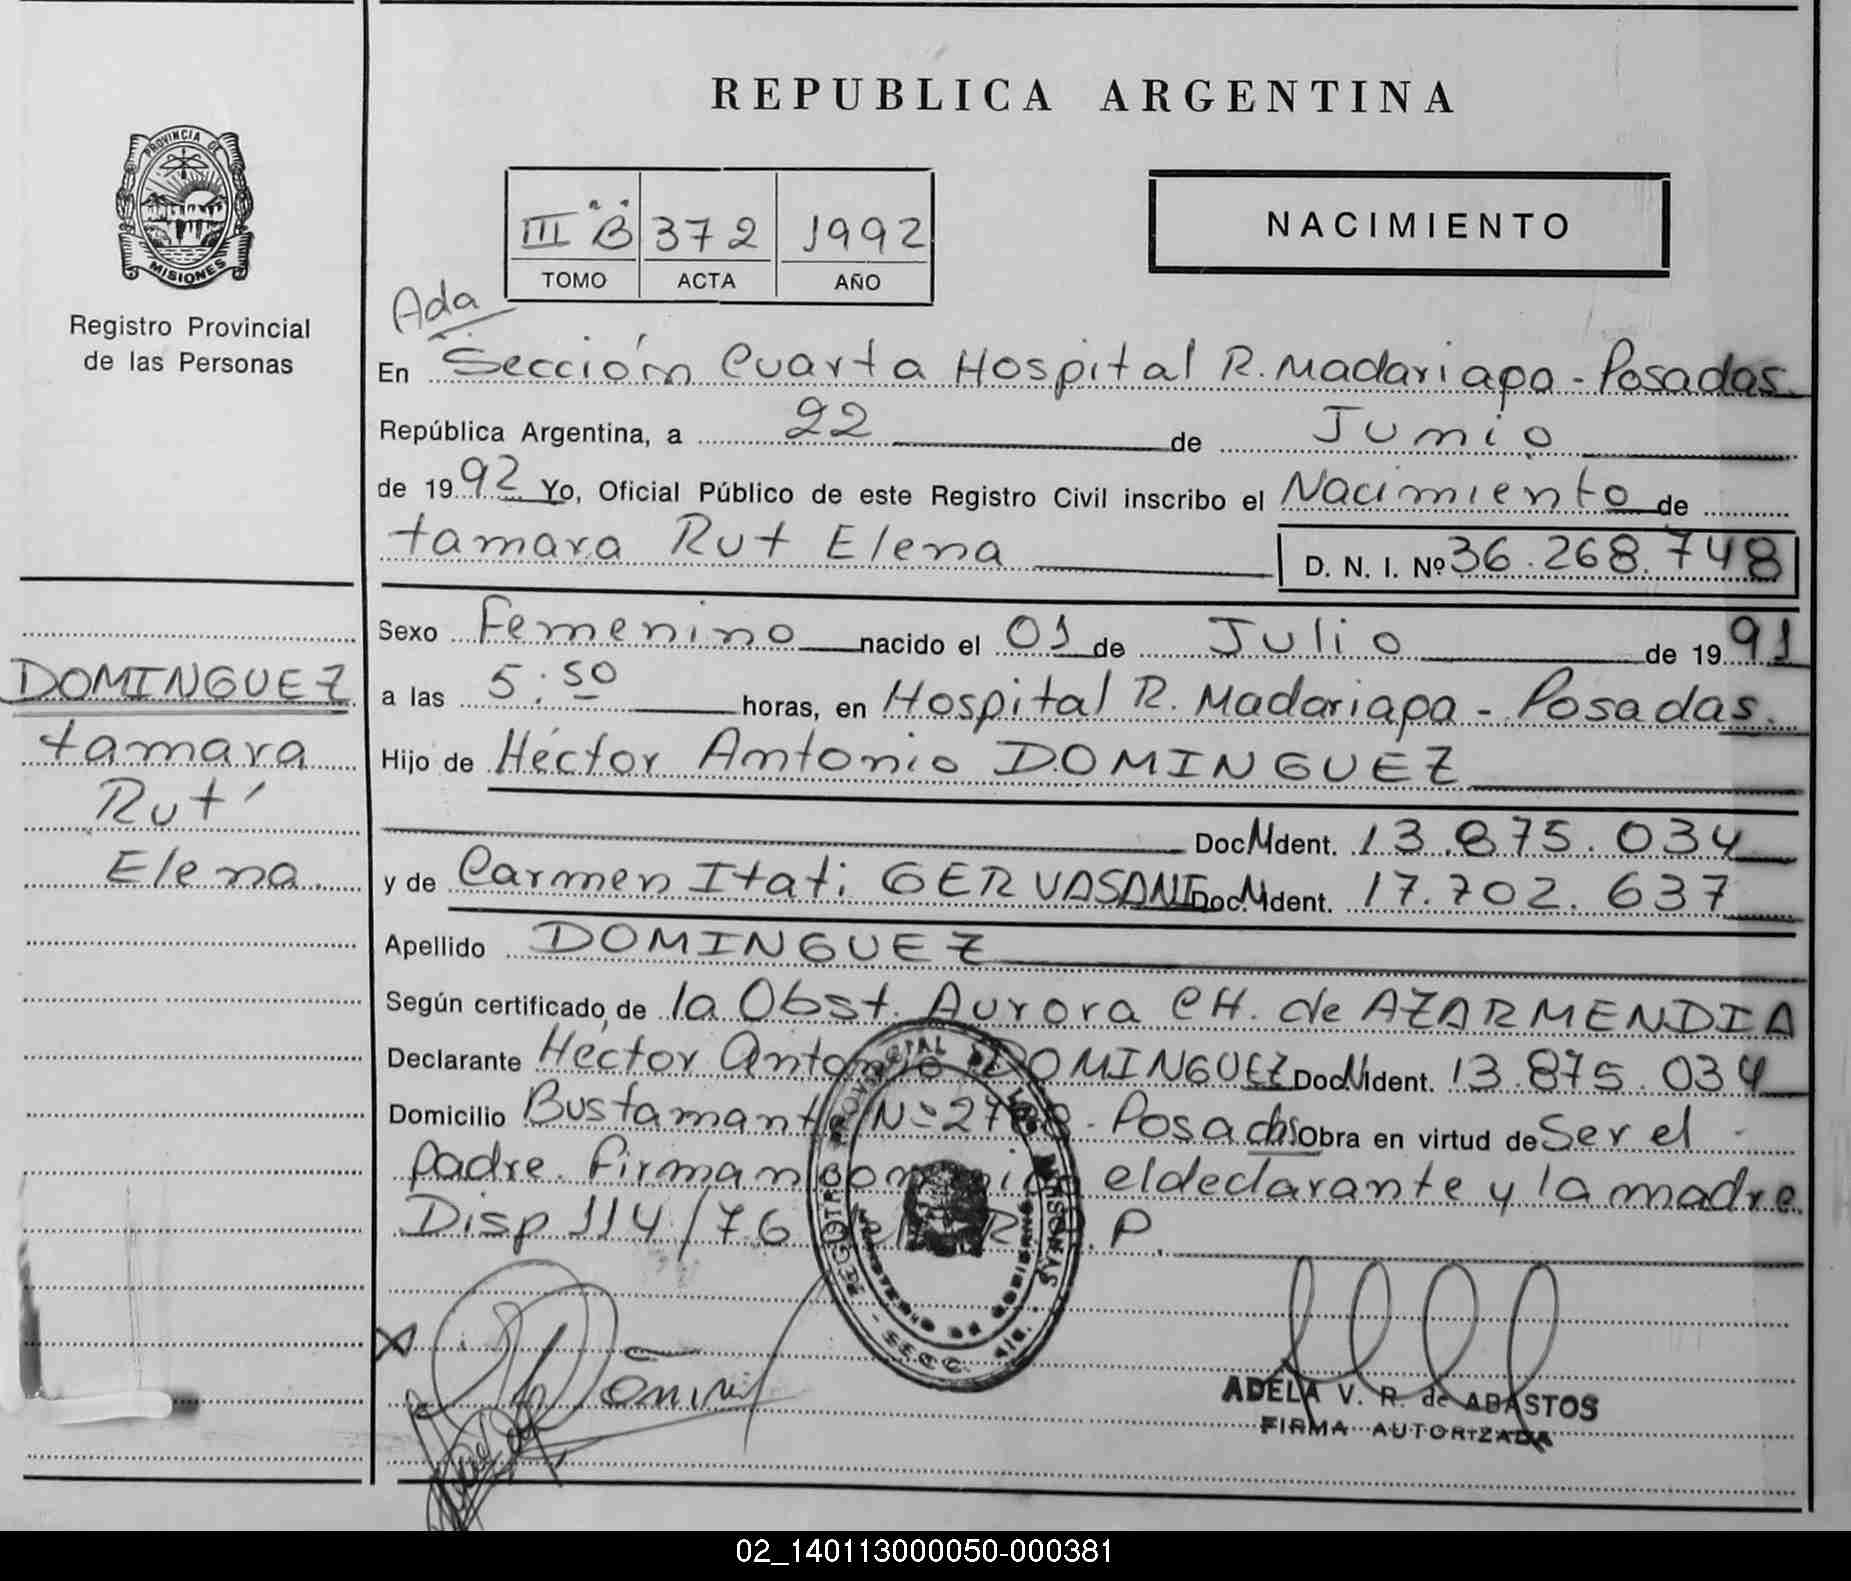 REPUBLICA ARGENTINA
PROVINCIA DE
MISIONES
Registro Provincial
de las Personas
III "B" 372 1992
TOMO ACTA AÑO
NACIMIENTO
Ada
En Sección Cuarta Hospital R. Madariaga - Posadas.
República Argentina, a 22 de Junio
de 1992 Yo, Oficial Público de este Registro Civil inscribo el Nacimiento de
tamara Rut Elena D. N. I. Nº 36.268.748
Sexo Femenino nacido el 01 de Julio de 1991
a las 5:50 horas, en Hospital R. Madariaga - Posadas.
Hijo de Héctor Antonio DOMINGUEZ
Doc M Ident. 13.875.034
y de Carmen Itati GERVASONI Doc. M Ident. 17.702.637
Apellido DOMINGUEZ
Según certificado de la Obst. Aurora CH. de AZARMENDIA
Declarante Héctor Antonio DOMINGUEZ Doc N Ident. 13.875.034
Domicilio Bustamante Nº Posadas Obra en virtud de Ser el
padre. Firman el declarante y la madre.
Disp 114/76 P.
DOMINGUEZ
tamara
Rut
Elena
REGISTRO PROVINCIAL DE LAS PERSONAS
MINISTERIO DE GOBIERNO
ADELA V. R. de ABASTOS
FIRMA AUTORIZADA
02_140113000050-000381